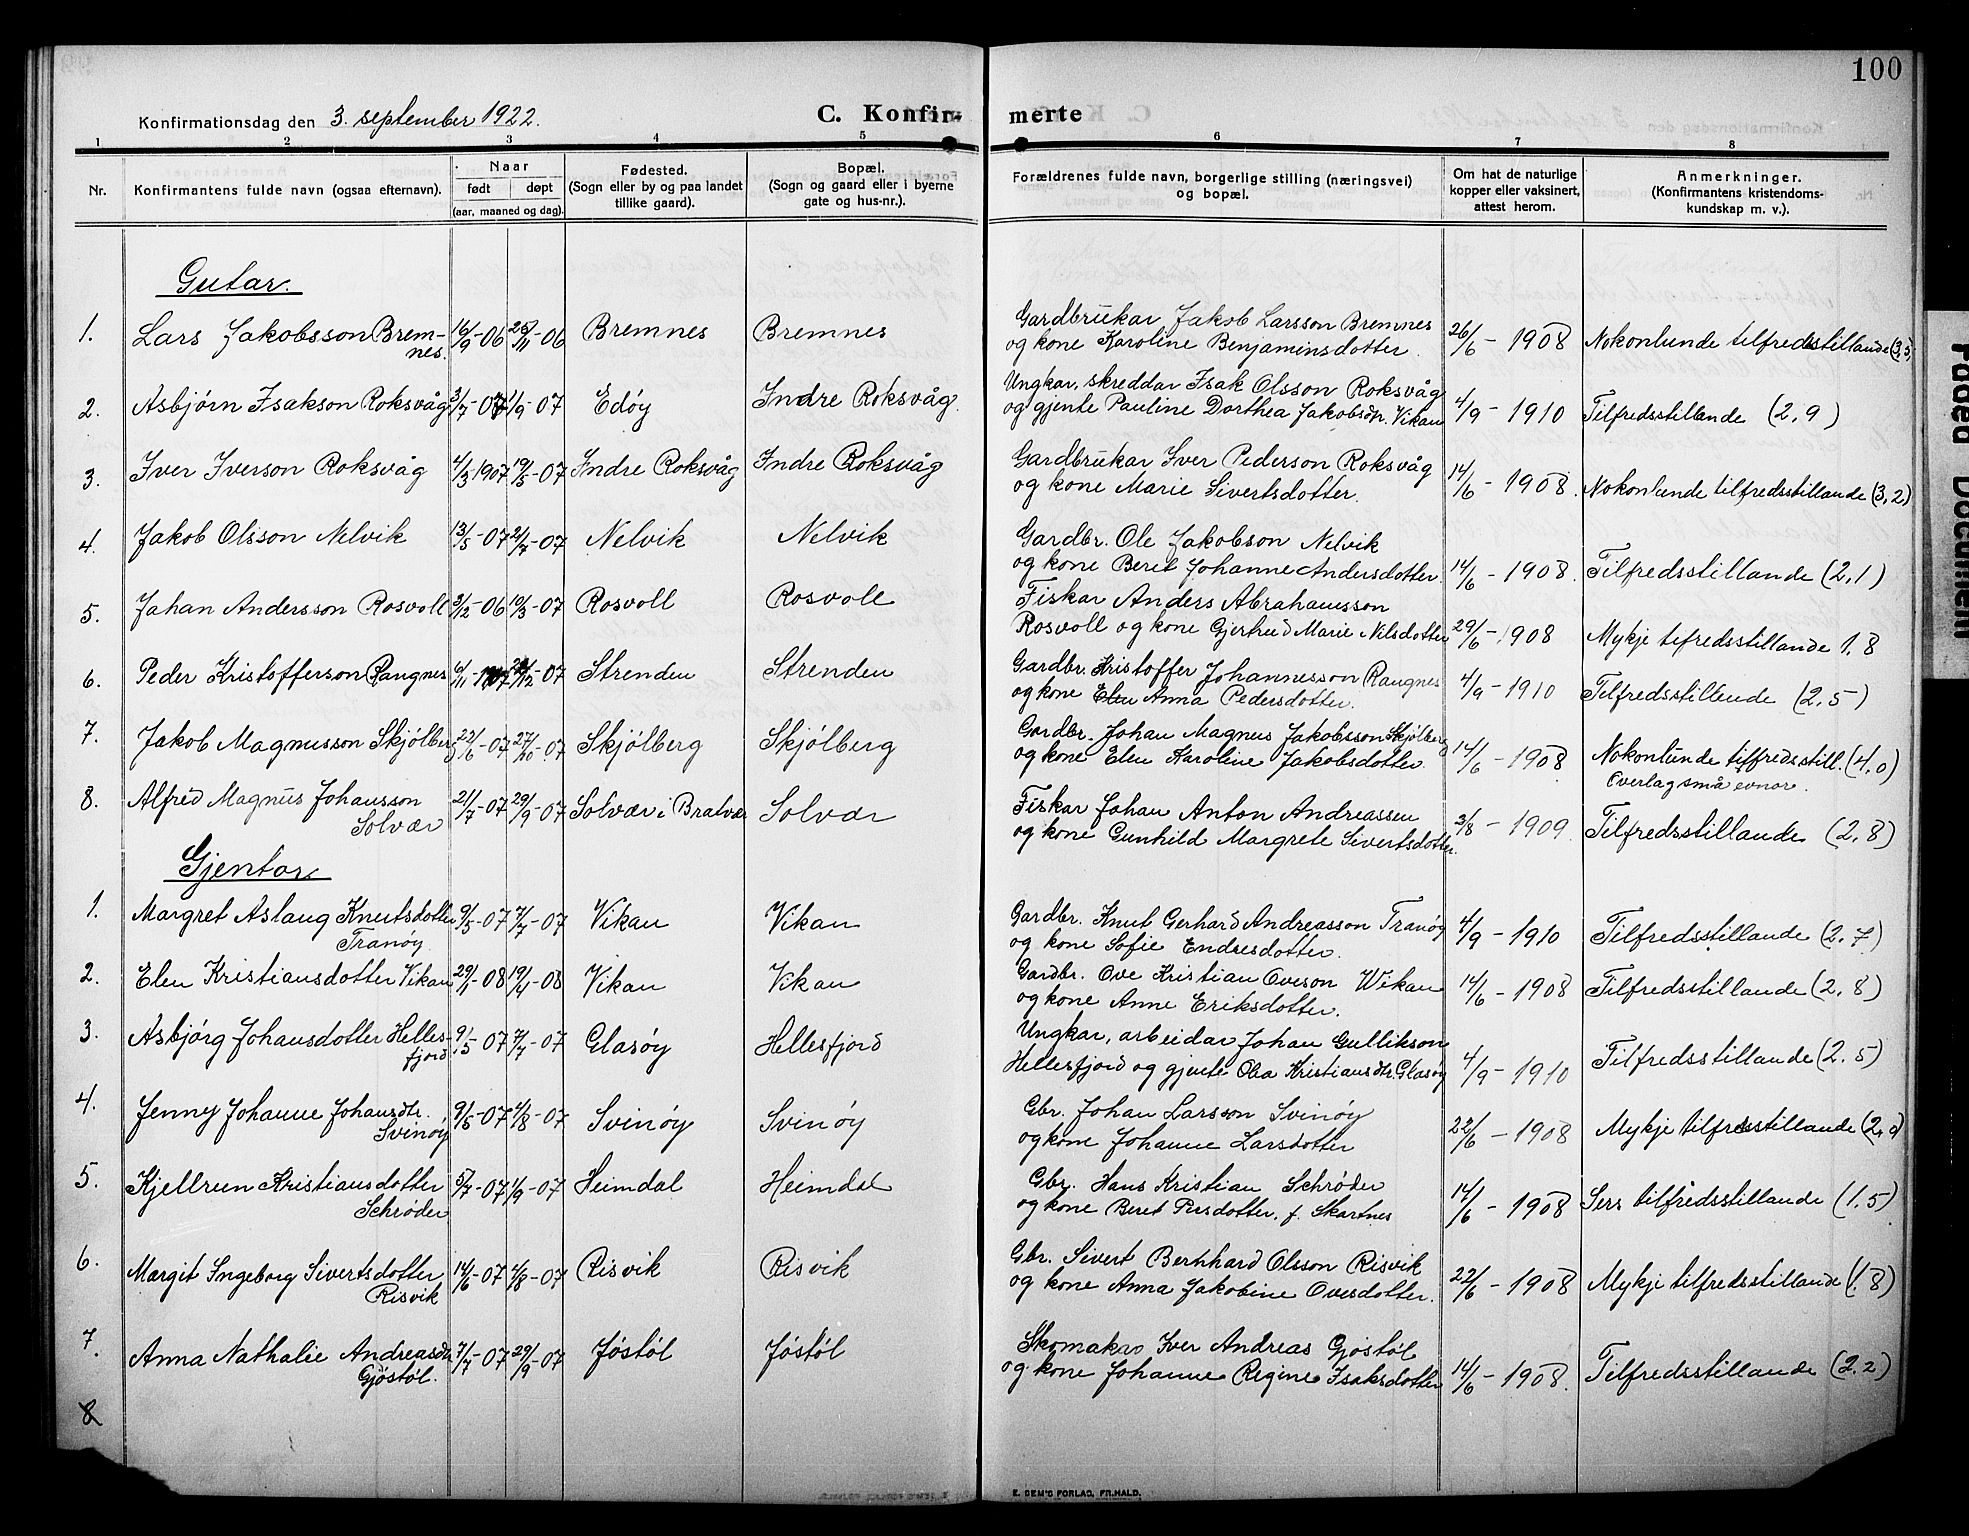 100
Konfirmationsdag den 3. september 1922.
C. Konfir- merte
1 2 3 4 5 6 7 8
Nr.
Konfirmantens fulde navn (ogsaa efternavn).
Naar
født døpt
(aar, maaned og dag).
Fødested.
(Sogn eller by og paa landet
tillike gaard).
Bopæl.
(Sogn og gaard eller i byerne
gate og hus-nr.).
Forældrenes fulde navn, borgerlige stilling (næringsvei)
og bopæl.
Om hat de naturlige
kopper eller vaksinert,
attest herom.
Anmerkninger.
(Konfirmantens kristendoms-
kundskap m. v.).
Gutar.
1. Lars Jakobsson Brem-
nes. 16/9-06 25/11-06 Bremnes Bremnes
Gardbrukar Jakob Larsson Bremnes
og kone Karoline Benjaminsdotter. 26/6-1908 Nokonlunde tilfredsstillande (3,5)
2. Asbjørn Isakson Roksvåg 3/7-07 1/9-07 Edøy Indre Roksvåg.
Ungkar, skreddar Isak Olsson Roksvåg
og gjente Pauline Dorthea Jakobsdr. Vikan 4/9-1910 Tilfredsstillande (2,9)
3. Iver Iverson Roksvåg 4/3 1907 19/5-07 Indre Roksvåg Indre Roksvåg
Gardbrukar Iver Pederson Roksvåg
og kone Marie Sivertsdotter. 14/6-1908. Nokonlunde tilfredsstillande (3,2)
4. Jakob Olsson Nelvik 13/5-07 2/7-07 Nelvik Nelvik
Gardbr. Ole Jakobson Nelvik
og kone Beret Johanne Andersdotter. 14/6-1908. Tilfredsstillande (2,1)
5. Johan Andersson Rosvoll 3/12-06 10/3-07 Rosvoll Rosvoll
Fiskar Anders Abrahamsson
Rosvoll og kone Gjertrud Marie Nilsdotter 29/6-1908 Mykje tefredsstillande 1.8
6. Peder Kristofferson Rangnes 6/11-1907 /12-07 Strenden Strenden
Gardbr. Kristoffer Johannesson Rangnes
og kone Elen Anna Pedersdotter. 4/9-1910 Tilfredsstillende (2.5)
7. Jakob Magnusson Skjølberg 22/6-07 27/10-07 Skjølberg Skjølberg
Gardbr. Johan Magnus Jakobsson Skjølberg
og kone Elen Karoline Jakobsdotter. 14/6-1908 Nokonlunde tilfredsstill. (4,0)
Overlag små evnor.
8. Alfred Magnus Johansson
Solvær 21/7-07 29/9-07 Solvær i Bratvær Solvær
Fiskar Johan Anton Andreassen
og kone Gunhild Margrete Sivertsdotter. 3/8-1909. Tilfredsstillande (2,8)
Gjentor
1. Margret Aslaug Knutsdotter
Tranöy. 9/5-07 7/7-07 Vikan Vikan
Gardbr. Knut Gerhard Andreasson Tranöy
og kone Sofie Endresdotter. 4/9-1910 Tilfredsstillande (2,7)
2. Elen Kristiansdotter Vikan 29/1-08 19/4-08 Vikan Vikan
Gardbr. Ove Kristian Oveson Wikan
og kone Anne Eriksdotter. 14/6-1908 Tilfredsstillande (2,8)
3. Asbjørg Johansdotter Helles-
fjord 9/5-07 7/7-07 Glasøy Hellesfjord
Ungkar, arbeidar Johan Gullikson
Hellesfjord og gjente Olea Kristiansdtr. Glasøy 4/9-1910 Tilfredsstillande (2.5)
4. Jenny Johanne Johansdtr.
Svinøy 9/5-07 4/8-07 Svinøy Svinøy
Gbr. Johan Larsson Svinøy
og kone Johanne Larsdotter 22/6-1908 Mykje tilfredsstillande (2,0)
5. Kjellrun Kristiansdotter
Schrøder 5/7-07 1/9-07 Heimdal Heimdal
Gbr. Hans Kristian Schrøder
og kone Beret Persdotter. f. Skartnes 14/6-1908 Sers tilfredsstillande (1,5)
6. Margit Ingeborg Sivertsdotter
Risvik 14/6-07 4/8-07 Risvik Risvik
Gbr. Sivert Bernhard Olsson Risvik
og kone Anna Jakobine Oversdotter. 22/6-1908 Mykje tilfredsstillande (1.8)
7. Anna Nathalie Andreasdtr
Gjøstøl. 7/7-07 29/9-07 Jøstøl Jøstøl
Skomakar Iver Andreas Gjøstøl
og kone Johanne Regine Isaksdotter 14/6-1908. Tilfredsstillande (2.2)
8
E. SEM'S FORLAG, FR.HALD.
Faded Document